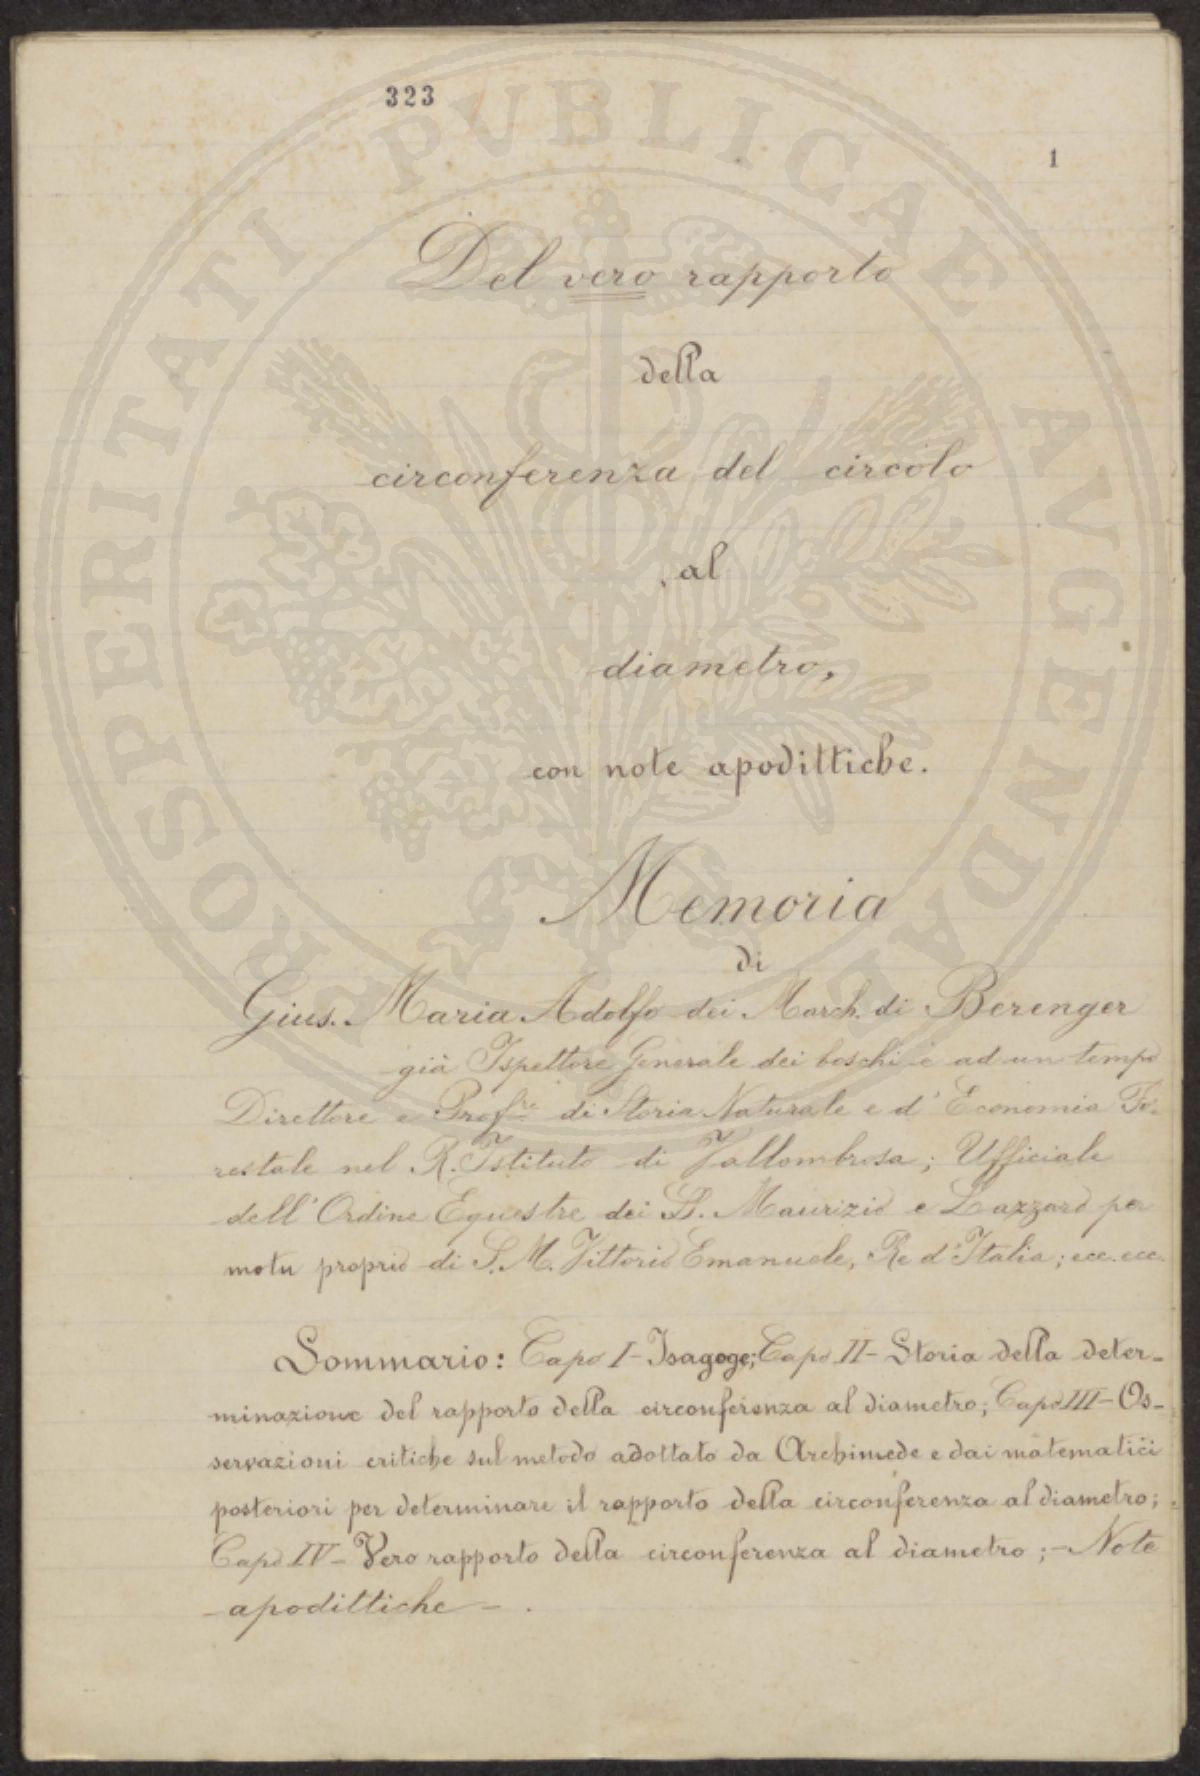 323
1
Del vero rapporto
della
circonferenza del circolo
al
diametro,
con note apodittiche.
Memoria
di
Gius. Maria Adolfo dei March. di Berenger
già Ispettore Generale dei boschi e ad un tempo
Direttore e Prof.re di Storia Naturale e d'Economia Fo-
restale nel R. Istituto di Vallombrosa; Ufficiale
dell'Ordine Equestre dei SS. Maurizio e Lazzaro per
motu proprio di S. M. Vittorio Emanuele, Re d'Italia; ecc. ecc.
Sommario: Capo I - Isagoge; Capo II - Storia della deter-
minazione del rapporto della circonferenza al diametro; Capo III - Os-
servazioni critiche sul metodo adottato da Archimede e dai matematici
posteriori per determinare il rapporto della circonferenza al diametro;
Capo IV - Vero rapporto della circonferenza al diametro; - Note
- apodittiche - .
PROSPERITATI PVBLICAE AVGENDAE